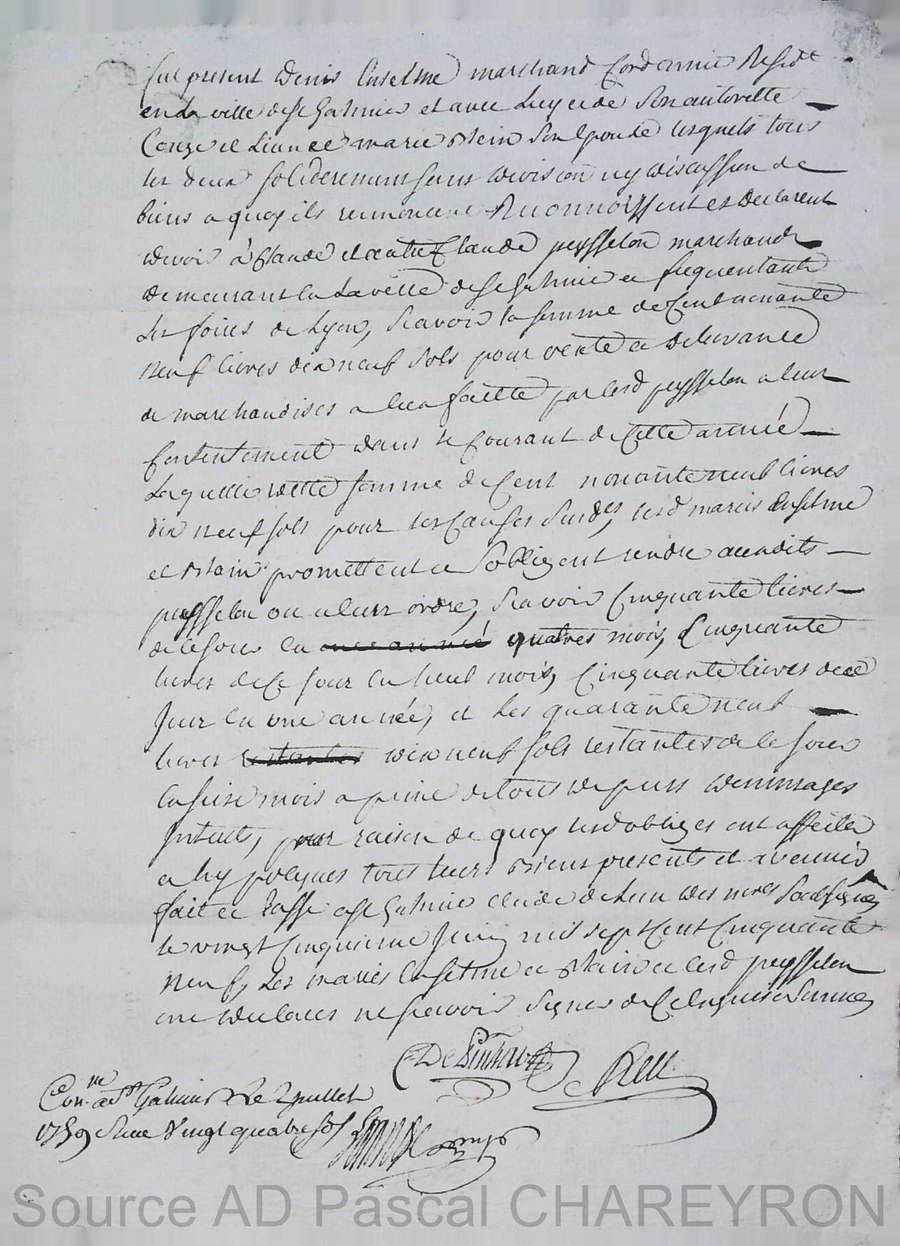 fut present Denis Anselme marchand Cordonnier Residt
en la ville de St Galmier et avec luy et de son autorette
Congé et licence marie Stain son epouse lesquels tous
les deux soliderement sans division ny discussion de
biens a quoy ils renoncent Reconnoissent et Declarent
devoir à Claude et autre Claude peysselon marchands
demeurant en la ville de St Galmier et frequentants
Les foires de Lyon, scavoir la somme de Cent nonante
neuf livres dix neuf sols pour vente et delivrance
de marchandises a eux faitte par lesd peysselon a leur
Contentement dans le courant de Cette année
Laquelle ditte somme de Cent nonante neuf livres
dix neuf sols pour les Causes susdes, lesd mariés Anselme
et Stain promettent et sobligent rendre auxdits
peysselon ou a leur ordre, scavoir Cinquante livres
de ce jour en quatres mois, Cinquante
livres de ce jour en huit mois, Cinquante livres de ce
Jour en une année, et Les quarante neuf
livres dix neuf sols restantes de ce jour
en seize mois a peine de tous depens dommages
Interets, pour raison de quoy lesd obligés ont affectés
et hypoteques tous leurs Biens presents et avenir
fait et Passé a St Galmier etude de Lun des nores Soussignés
le vingt Cinquieme Juin mil sept Cent Cinquante
neuf, Les mariés Anselme et Stain et lesd peysselon
ont declarés ne scavoir signer de Ce enquis et Sommés
Con.lle a St Galmier Le 2 juillet
1759 Receu Vingt quatre sols
Source AD Pascal CHAREYRON